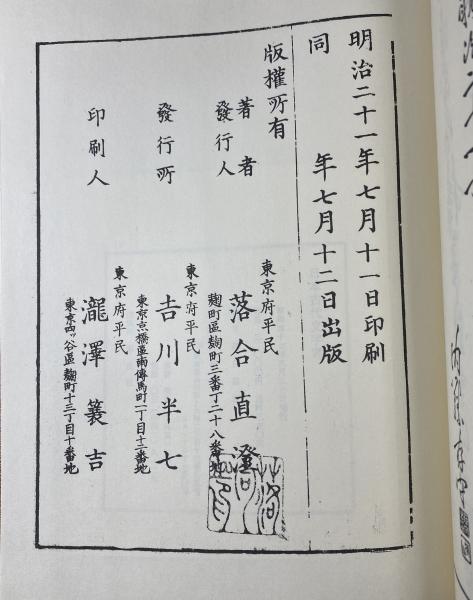 明治二十一年七月十一日印刷
同　　　年七月十二日出版
版權所有
著者
發行人
東京府平民
落合直澄
麴町區麴町三番丁二十八番地
發行所
東京府平民
吉川半七
東京京橋區南傳馬町一丁目十二番地
印刷人
東京府平民
瀧澤簑吉
東京四ッ谷區麴町十三丁目十番地